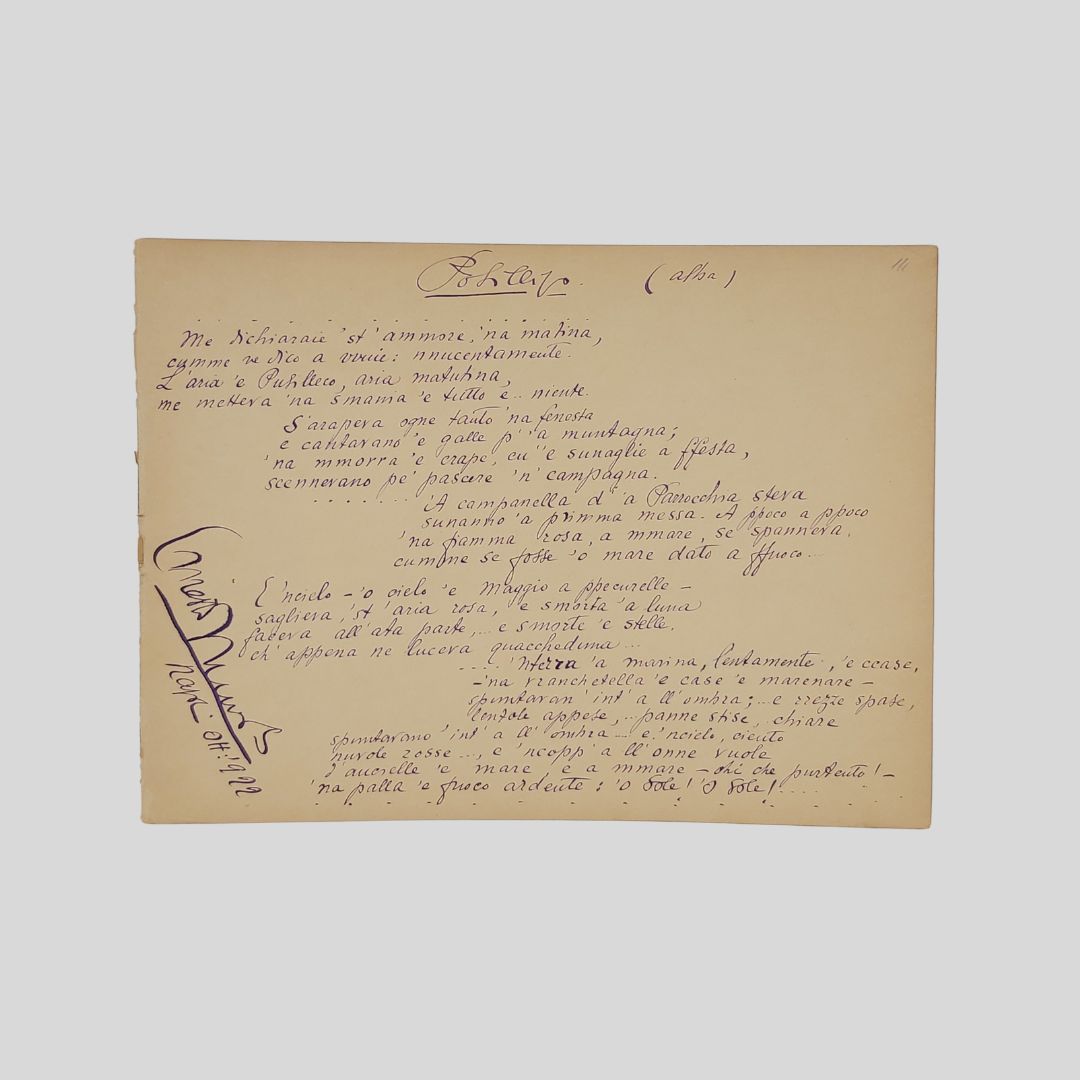 Posillipo. (alba)
Me dichiaraie 'st' ammore, 'na matina,
cumme ve dico a vvuie: nnucentamente.
L'aria 'e Pusilleco, aria matutina,
me metteva 'na smania 'e tutto e.. niente.
S'arapeva ogne tanto 'na fenesta
e cantavano 'e galle p' 'a muntagna;
'na mmorra 'e crape, cu' 'e sunaglie a ffesta,
scennevano pe' pascere 'n' campagna.
'A campanella d' 'a Parrocchia steva
sunanno 'a primma messa. A ppoco a ppoco
'na fiamma rosa, a mmare, se spanneva,
cumme se fosse 'o mare dato a ffuoco...
E 'ncielo - 'o cielo 'e Maggio a ppecurelle -
saglieva, 'st' aria rosa, 'e smorta 'a luna
faceva all'ata parte,... e smorte 'e stelle,
ch' appena ne luceva quaccheduna...
.... 'Nterra 'a marina, lentamente, 'e ccase,
-'na vranchetella 'e case 'e marenare -
spuntavan' int' a ll'ombra;... e rrezze spase,
lenzole appese,... panne stise, chiare
spuntavano 'int' a ll' ombra.... e 'ncielo, ciento
nuvole rosse..., e 'ncopp' a ll'onne vuole
d'aucielle 'e mare, e a mmare - ohi che purtento! -
'na palla 'e fuoco ardente: 'o Sole! 'O Sole!....
Ernesto Murolo
Napoli - Ott: '922